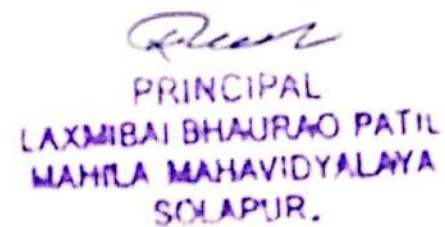 PRINCIPAL
LAXMIBAI BHAURAO PATIL
MAHILA MAHAVIDYALAYA
SOLAPUR.